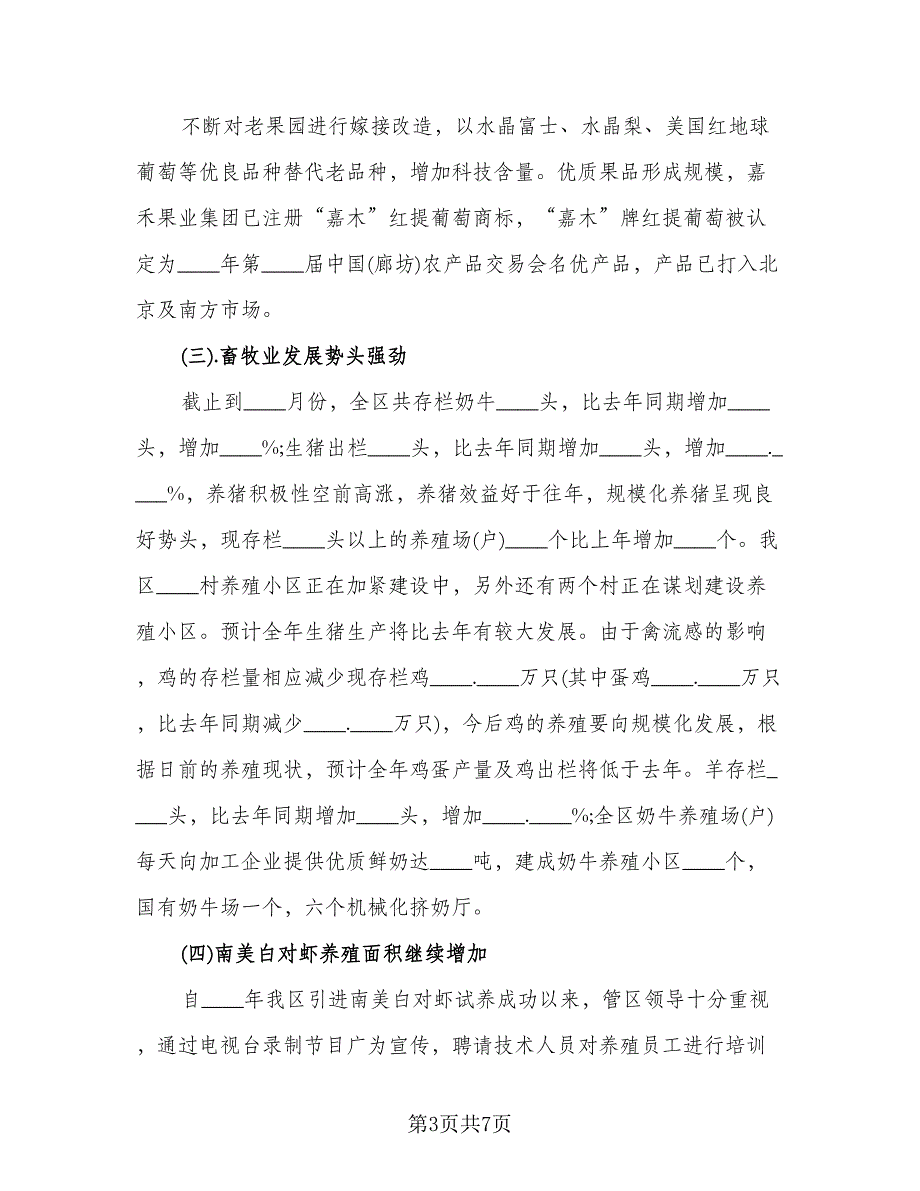 不断对老果园进行嫁接改造，以水晶富士、水晶梨、美国红地球
葡萄等优良品种替代老品种，增加科技含量。优质果品形成规模，嘉
禾果业集团已注册“嘉木”红提葡萄商标，“嘉木”牌红提葡萄被认
定为____年第____届中国(廊坊)农产品交易会名优产品，产品已打入北
京及南方市场。
(三).畜牧业发展势头强劲
截止到____月份，全区共存栏奶牛____头，比去年同期增加____
头，增加____%;生猪出栏____头，比去年同期增加____头，增加____._
___%，养猪积极性空前高涨，养猪效益好于往年，规模化养猪呈现良
好势头，现存栏____头以上的养殖场(户)____个比上年增加____个。我
区____村养殖小区正在加紧建设中，另外还有两个村正在谋划建设养
殖小区。预计全年生猪生产将比去年有较大发展。由于禽流感的影响
，鸡的存栏量相应减少现存栏鸡____.____万只(其中蛋鸡____.____万只
，比去年同期减少____.____万只)，今后鸡的养殖要向规模化发展，根
据日前的养殖现状，预计全年鸡蛋产量及鸡出栏将低于去年。羊存栏_
___头，比去年同期增加____头，增加____.____%;全区奶牛养殖场(户)
每天向加工企业提供优质鲜奶达____吨，建成奶牛养殖小区____个，
国有奶牛场一个，六个机械化挤奶厅。
(四)南美白对虾养殖面积继续增加
自____年我区引进南美白对虾试养成功以来，管区领导十分重视
，通过电视台录制节目广为宣传，聘请技术人员对养殖员工进行培训
第3页共7页